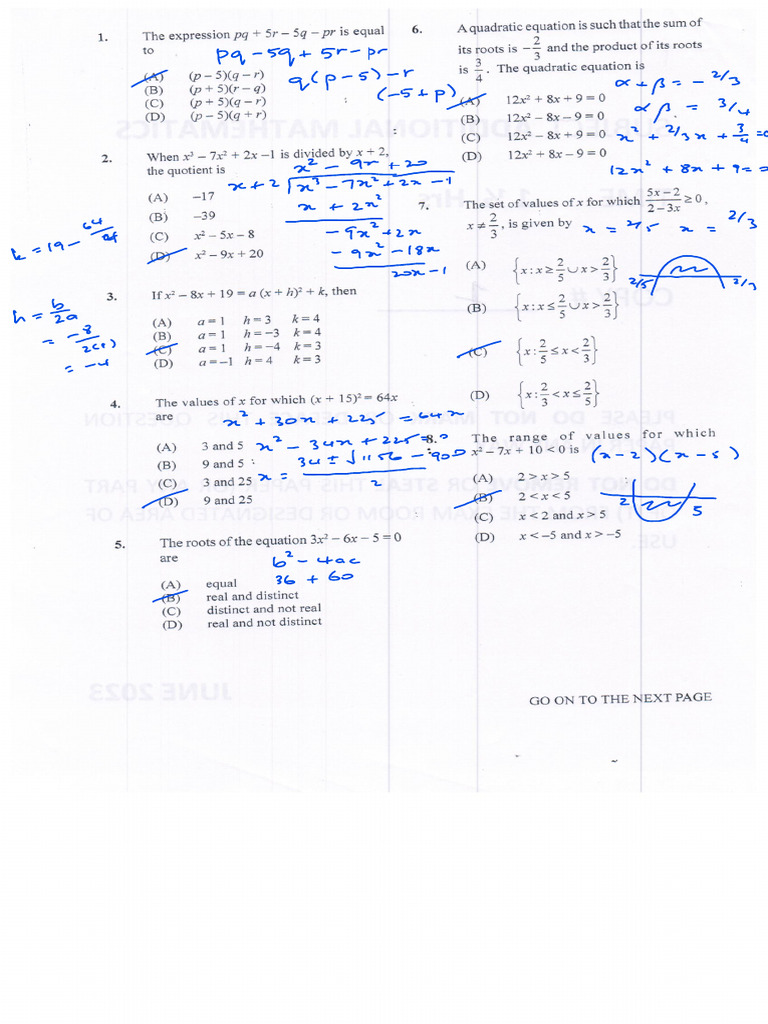 1. The expression pq + 5r – 5q – pr is equal
to
pq – 5q + 5r – pr
(A) (p – 5)(q – r)
(B) (p + 5)(r – q)
(C) (p + 5)(q – r)
(D) (p – 5)(q + r)
q(p – 5) – r
(–5 + p)
2. When x³ – 7x² + 2x –1 is divided by x + 2,
the quotient is
x² – 9x + 20
x + 2 x³ – 7x² + 2x – 1
x + 2x²
– 9x² + 2x
– 9x² – 18x
20x – 1
(A) –17
(B) –39
(C) x² – 5x – 8
(D) x² – 9x + 20
k = 19 – 64/
3. If x² – 8x + 19 = a (x + h)² + k, then
(A) a = 1 h = 3 k = 4
(B) a = 1 h = –3 k = 4
(C) a = 1 h = –4 k = 3
(D) a = –1 h = 4 k = 3
h = b/2a
= –8/2(1)
= –4
4. The values of x for which (x + 15)² = 64x
are
x² + 30x + 225 = 64x
x² – 34x + 225 = 0
x = 34 ± √1156 – 900
2
(A) 3 and 5
(B) 9 and 5
(C) 3 and 25
(D) 9 and 25
5. The roots of the equation 3x² – 6x – 5 = 0
are
b² – 4ac
36 + 60
(A) equal
(B) real and distinct
(C) distinct and not real
(D) real and not distinct
6. A quadratic equation is such that the sum of
its roots is –2/3 and the product of its roots
is 3/4. The quadratic equation is
(A) 12x² + 8x + 9 = 0
(B) 12x² – 8x – 9 = 0
(C) 12x² – 8x + 9 = 0
(D) 12x² + 8x – 9 = 0
α + β = –2/3
α β = 3/4
x² + 2/3x + 3/4 = 0
12x² + 8x + 9 =
7. The set of values of x for which 5x – 2/2 – 3x ≥ 0,
x ≠ 2/3, is given by
x = 2/5 x = 2/3
(A) {x : x ≥ 2/5 ∪ x > 2/3}
(B) {x : x ≤ 2/5 ∪ x > 2/3}
(C) {x : 2/5 ≤ x < 2/3}
(D) {x : 2/3 < x ≤ 2/5}
2/5 2/3
8. The range of values for which
x² – 7x + 10 < 0 is
(x – 2)(x – 5)
(A) 2 > x > 5
(B) 2 < x < 5
(C) x < 2 and x > 5
(D) x < –5 and x > –5
2 5
GO ON TO THE NEXT PAGE
JUNE 2023